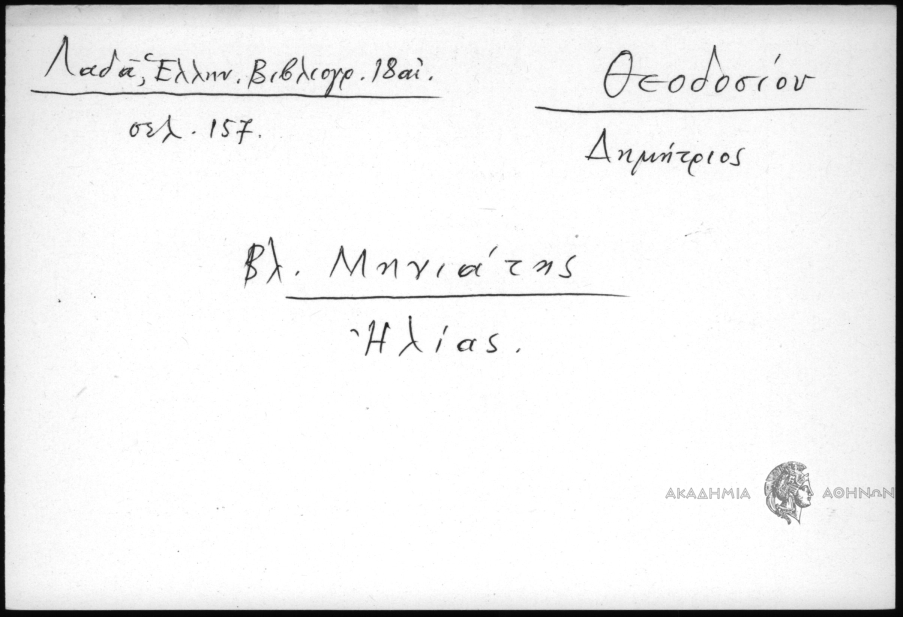 Λαδᾶ, Ἑλλην. Βιβλιογρ. 18 αἰ.
σελ. 157.
Θεοδοσίου
Δημήτριος
Βλ. Μηνιάτης
Ἠλίας.
ΑΚΑΔΗΜΙΑ ΑΘΗΝΩΝ